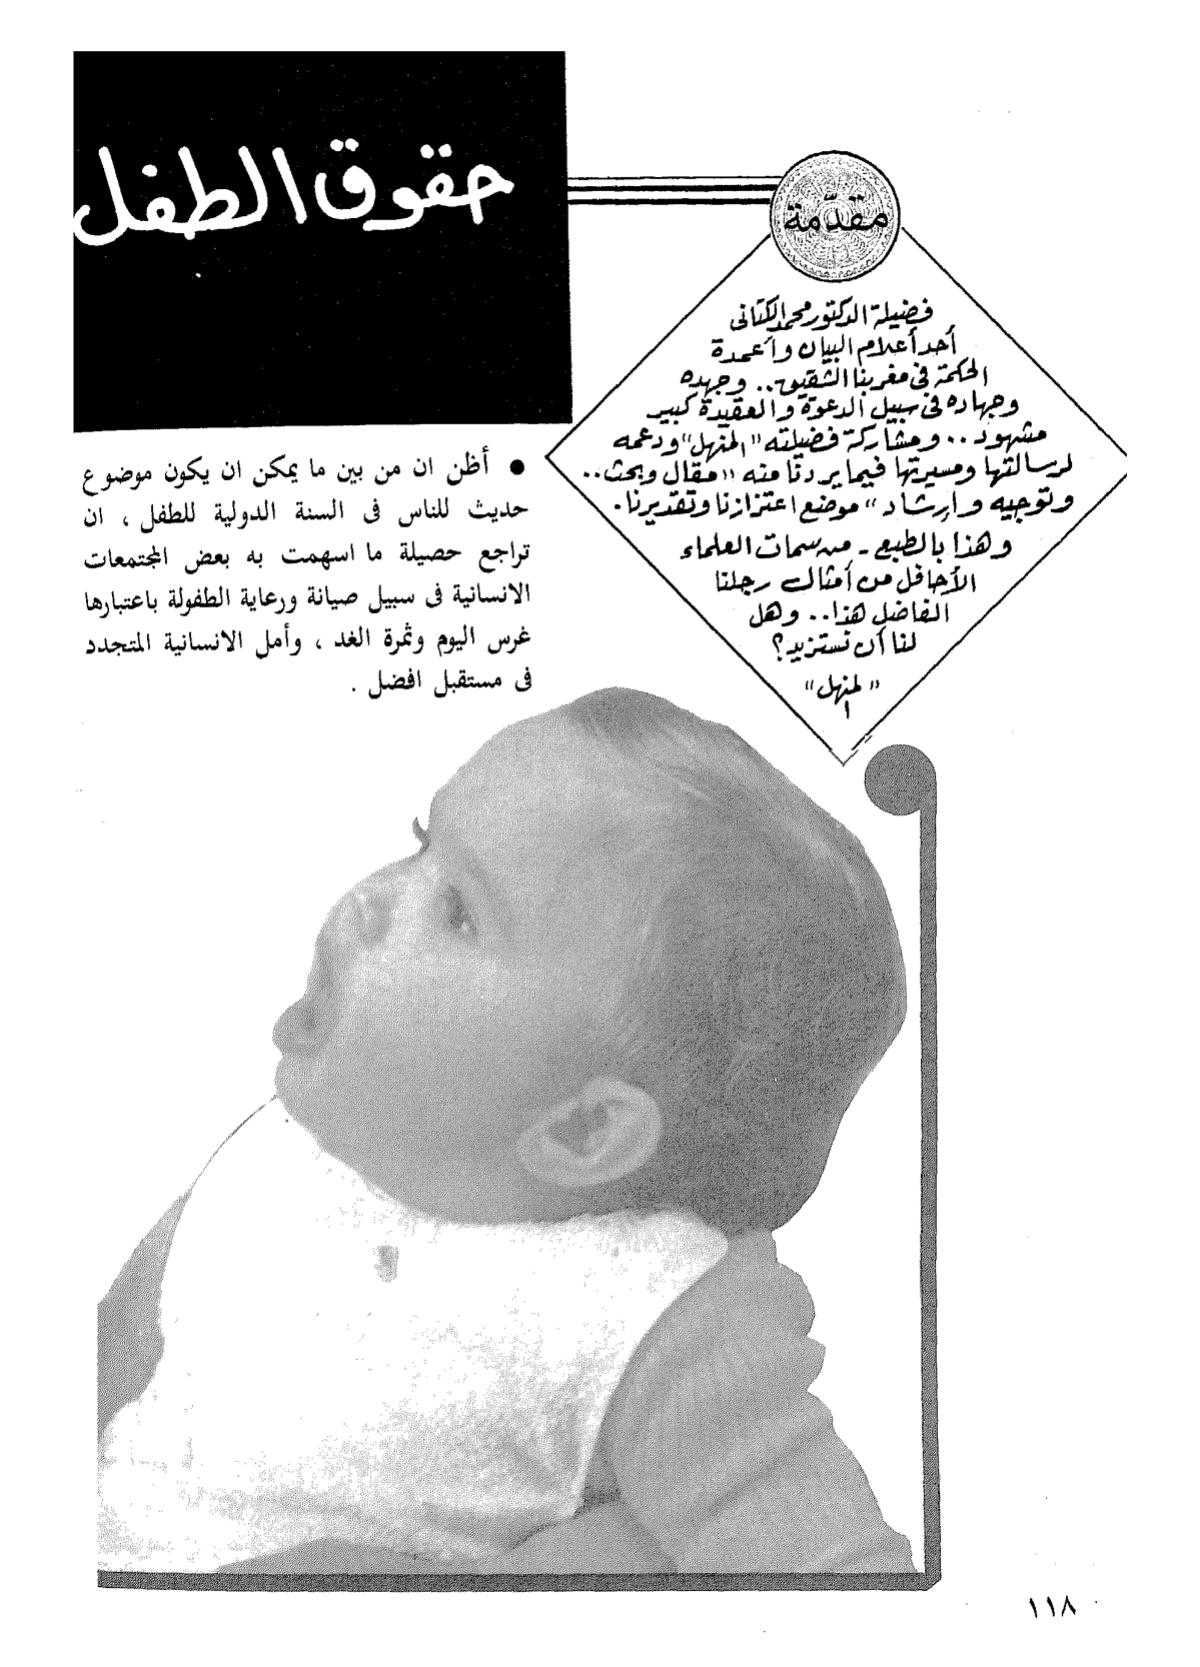 حقوق الطفل
مقدّمة
فضيلة الدكتور محمد الكتانى
أحد أعلام البيان وأعمدة
الحكمة فى مغربنا الشقيق .. وجهده
وجهاده فى سبيل الدعوة والعقيدة كبير
مشهود .. ومشاركة فضيلته "المنهل" ودعمه
لرسالتها ومسيرتها فيما يردنا منه "مقال وبحث ..
وتوجيه وإرشاد" موضع اعتزازنا وتقديرنا .
وهذا بالطبع - من سمات العلماء
الأجافل من أمثال رجلنا
الفاضل هذا .. وهل
لنا أن نستزيد ؟
"المنهل"
● أظن ان من بين ما يمكن ان يكون موضوع
حديث للناس فى السنة الدولية للطفل ، ان
تراجع حصيلة ما اسهمت به بعض المجتمعات
الانسانية فى سبيل صيانة ورعاية الطفولة باعتبارها
غرس اليوم وثمرة الغد ، وأمل الانسانية المتجدد
فى مستقبل افضل .
١١٨